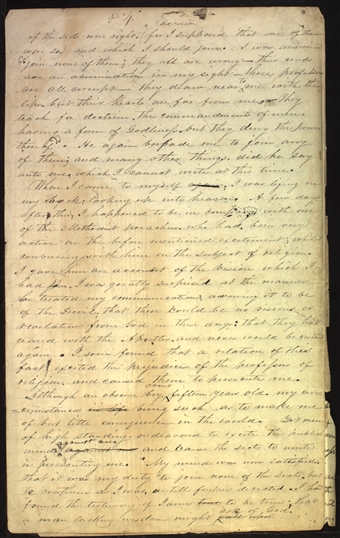 P. 4
of the sects was right, for I supposed that one of them
was so and which I should join. I was answered
join none of them; they all are wrong their creeds
are an abomination in my sight those professors
are all corrupt they draw near to me with their
lips but their hearts are far from me they
teach for doctrine the commandments of men
having a form of Godliness but they deny the power
thereof. He again forbade me to join any
of them; and many other things did he say
unto me which I cannot write at this time.
When I came to myself I was lying on
my back looking up into heaven. A few days
after this I happened to be in company with one
of the Methodist preachers who had been very
active in the before mentioned excitement, whilst
conversing with him on the subject of religion
I gave him an account of the vision which I
had I was greatly surprised at the manner
he treated my communication, averring it to be
of the Devil, that there could be no visions or
revelations from God in these days; that they had
ceased with the Apostles, and never could be
again. I soon found that a relation of this
fact excited the prejudices of the professors of
religion and caused them to persecute me.
Although an obscure boy fifteen years old my cir-
cumstances being such as to make me
of but little consequence in the world. Yet men
of high standing endeavoured to excite the public
mind against me and cause the sects to unite
in persecuting me. My mind was now satisfied
that it was my duty to join none of the sects, but
to continue as I was, until further directed. I had
found the testimony of James to be true, that
a man lacking wisdom might ask of God